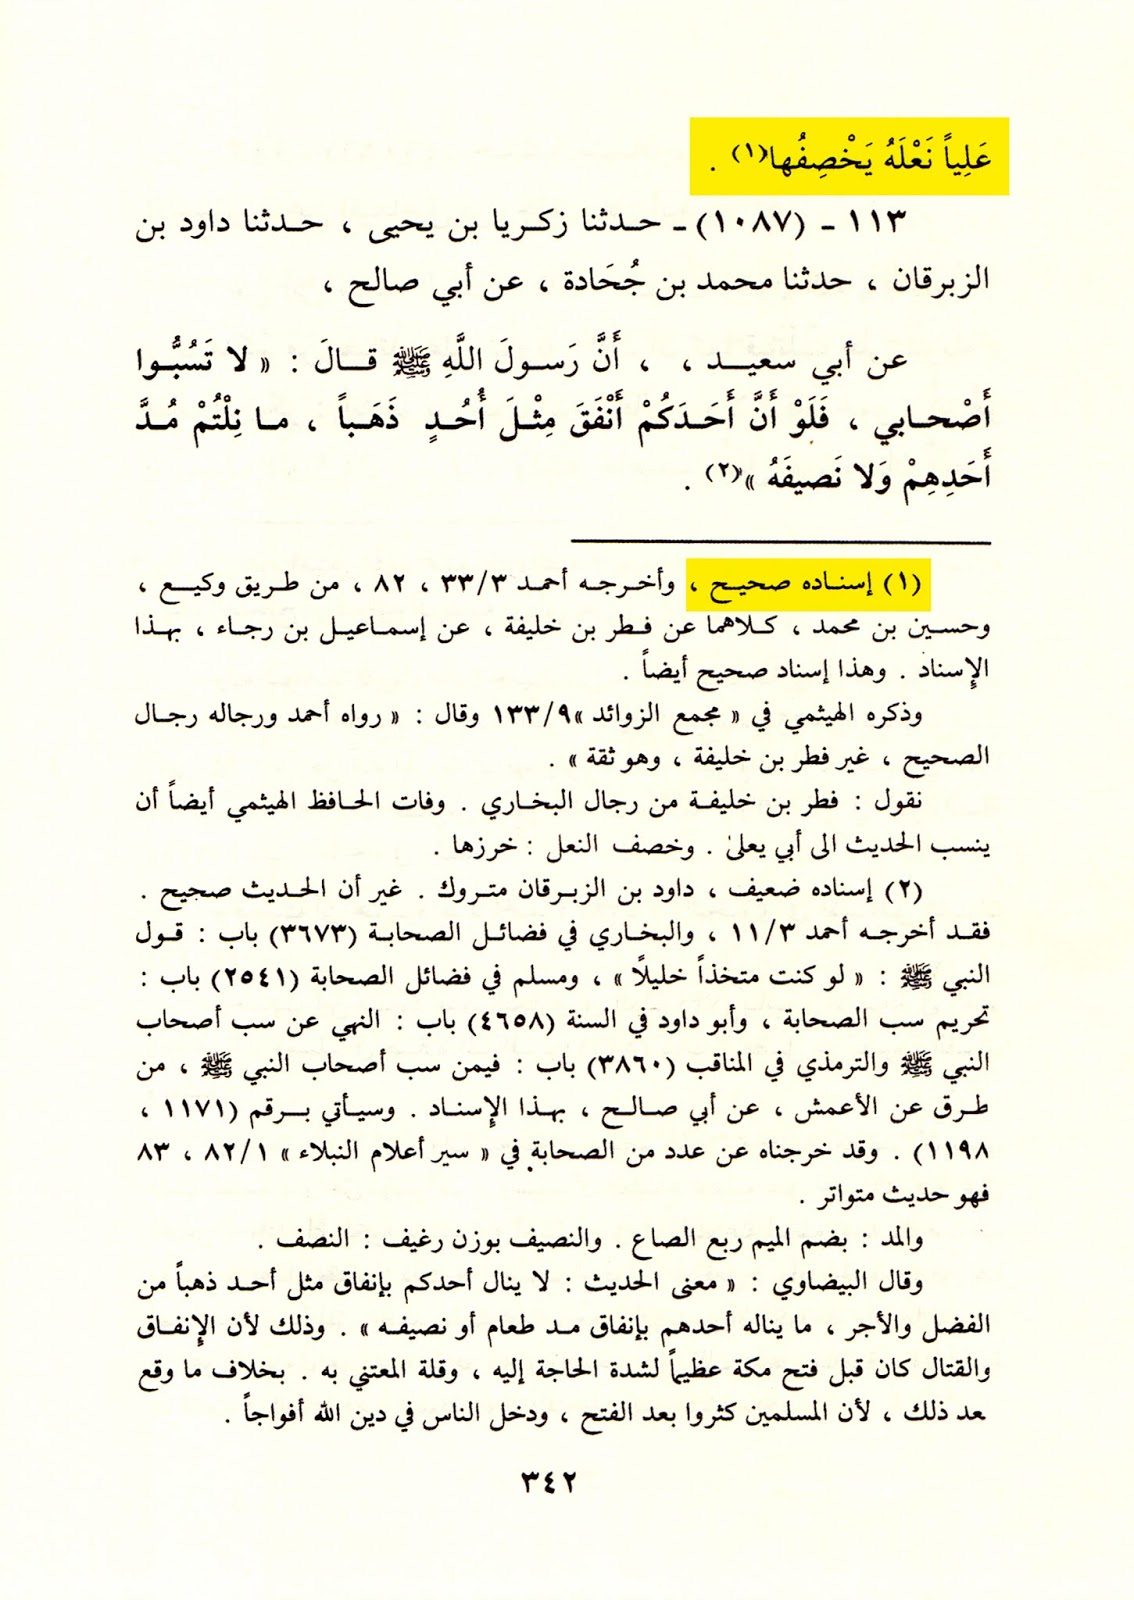 عَلِياً نَعْلَهُ يَخْصِفُها(١) .
١١٣ - (١٠٨٧) - حدثنا زكريا بن يحيى ، حدثنا داود بن
الزبرقان ، حدثنا محمد بن جُحَادة ، عن أبي صالح ،
عن أبي سعيد ، ، أَنَّ رَسولَ اللَّهِ ﷺ قالَ : « لا تَسُبُّوا
أَصْحابي ، فَلَوْ أَنَّ أَحَدَكُمْ أَنْفَقَ مِثْلَ أُحُدٍ ذَهَباً ، ما نِلْتُمْ مُدَّ
أَحَدِهِمْ وَلا نَصيفَهُ »(٢) .
(١) إسناده صحيح ، وأخرجه أحمد ٣/ ٣٣ ، ٨٢ ، من طريق وكيع ،
وحسين بن محمد ، كلاهما عن فطر بن خليفة ، عن إسماعيل بن رجاء ، بهذا
الإسناد . وهذا إسناد صحيح أيضاً .
وذكره الهيثمي في « مجمع الزوائد »٩/ ١٣٣ وقال : « رواه أحمد ورجاله رجال
الصحيح ، غير فطر بن خليفة ، وهو ثقة » .
نقول : فطر بن خليفة من رجال البخاري . وفات الحافظ الهيثمي أيضاً أن
ينسب الحديث الى أبي يعلىٰ . وخصف النعل : خرزها .
(٢) إسناده ضعيف ، داود بن الزبرقان متروك . غير أن الحديث صحيح .
فقد أخرجه أحمد ٣/ ١١ ، والبخاري في فضائل الصحابة (٣٦٧٣) باب : قول
النبي ﷺ : « لو كنت متخذاً خليلًا » ، ومسلم في فضائل الصحابة (٢٥٤١) باب :
تحريم سب الصحابة ، وأبو داود في السنة (٤٦٥٨) باب : النهي عن سب أصحاب
النبي ﷺ والترمذي في المناقب (٣٨٦٠) باب : فيمن سب أصحاب النبي ﷺ ، من
طرق عن الأعمش ، عن أبي صالح ، بهذا الإسناد . وسيأتي برقم (١١٧١ ،
١١٩٨) . وقد خرجناه عن عدد من الصحابة في « سير أعلام النبلاء » ١/ ٨٢ ، ٨٣
فهو حديث متواتر .
والمد : بضم الميم ربع الصاع . والنصيف بوزن رغيف : النصف .
وقال البيضاوي : « معنى الحديث : لا ينال أحدكم بإنفاق مثل أحد ذهباً من
الفضل والأجر ، ما يناله أحدهم بإنفاق مد طعام أو نصيفه » . وذلك لأن الإنفاق
والقتال كان قبل فتح مكة عظيماً لشدة الحاجة إليه ، وقلة المعتني به . بخلاف ما وقع
بعد ذلك ، لأن المسلمين كثروا بعد الفتح ، ودخل الناس في دين الله أفواجاً .
٣٤٢